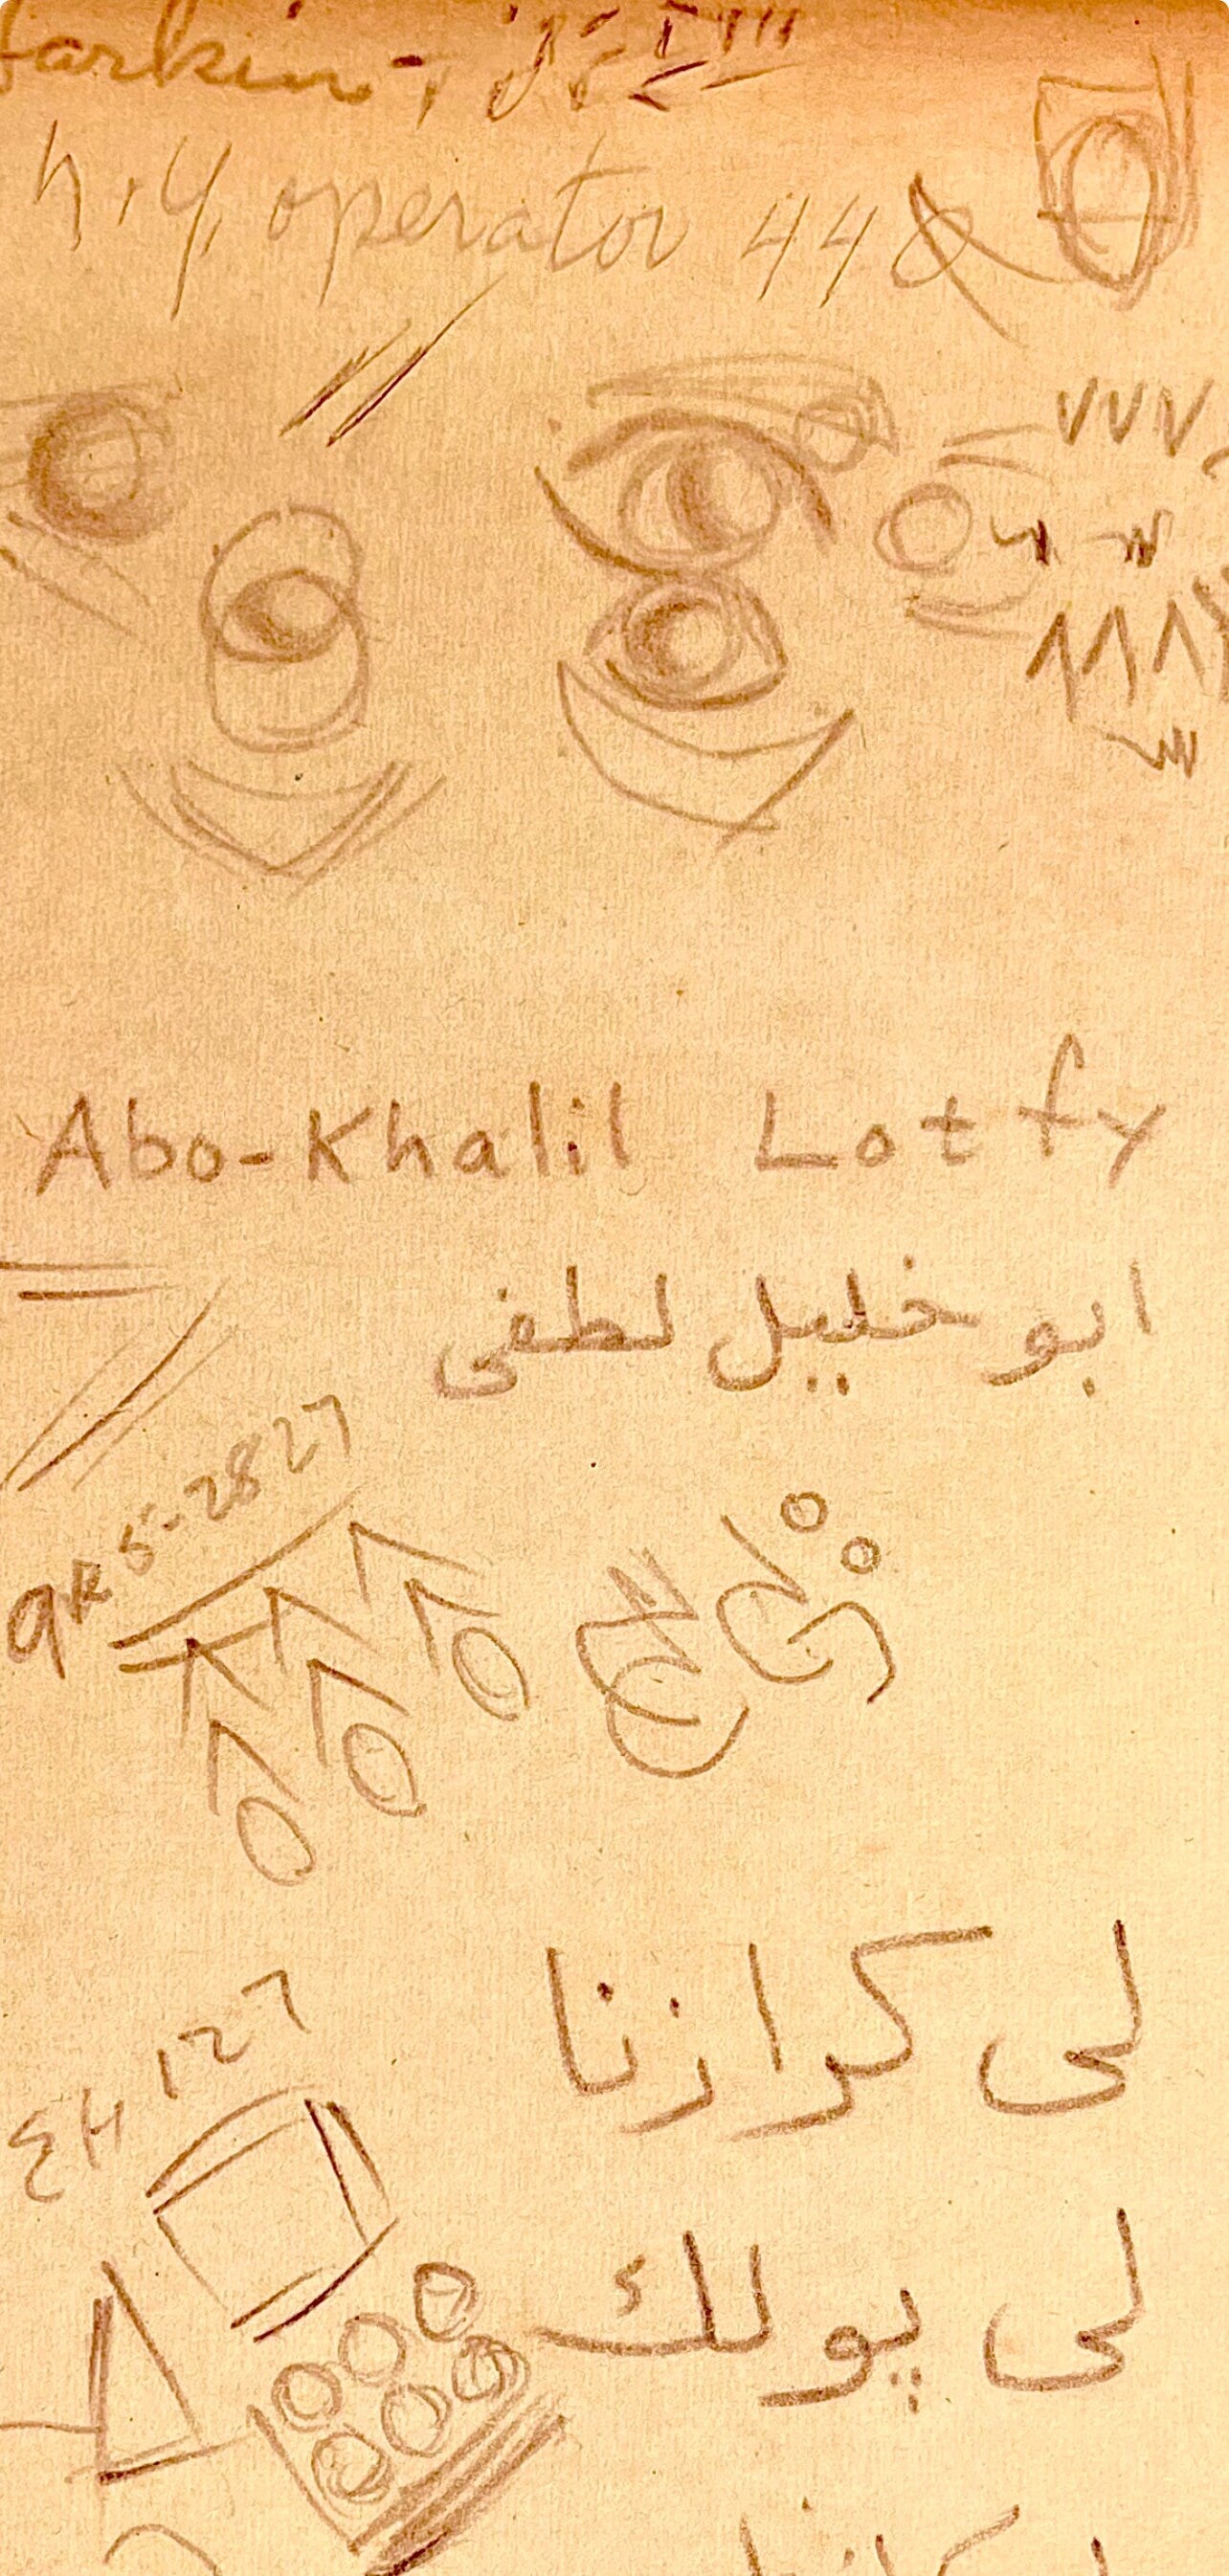 N.Y. operator 448
Abo-Khalil Lotfy
ابو خليل لطفى
gR 5-2827
لى كرازنا
EH 127
لى پولك